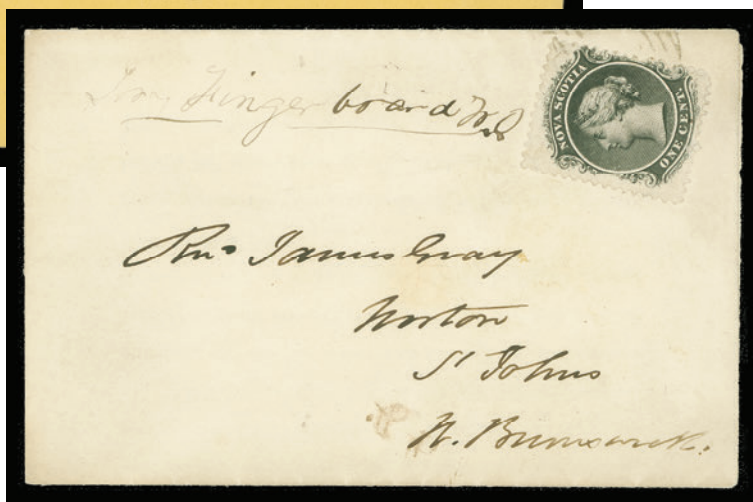 Finger board
NOVA SCOTIA
ONE CENT.
Revd James Gray
Norton
St Johns
N. Brunswick.